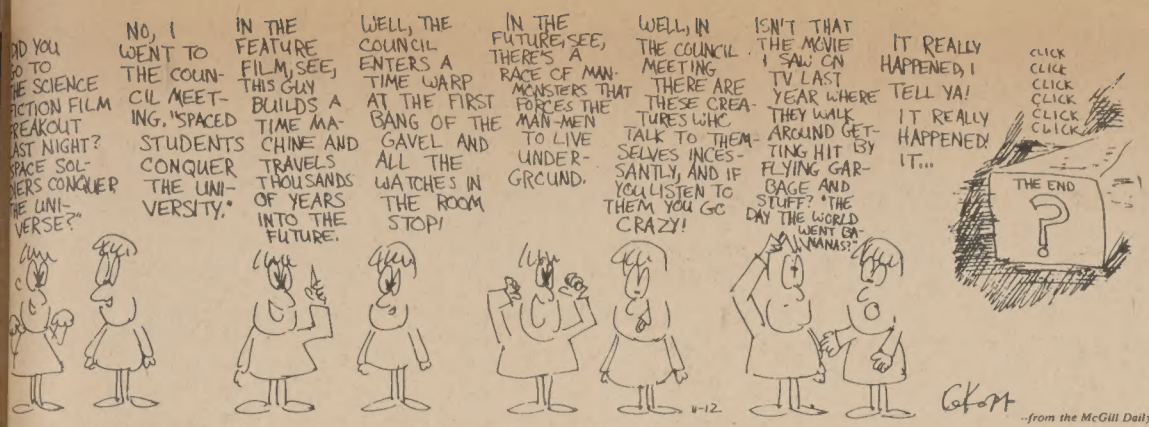 DID YOU
GO TO
THE SCIENCE
FICTION FILM
FREAKOUT
LAST NIGHT?
"SPACE SOL-
DIERS CONQUER
THE UNI-
VERSE?"
NO, I
WENT TO
THE COUN-
CIL MEET-
ING. "SPACED
STUDENTS
CONQUER
THE UNI-
VERSITY."
IN THE
FEATURE
FILM, SEE,
THIS GUY
BUILDS A
TIME MA-
CHINE AND
TRAVELS
THOUSANDS
OF YEARS
INTO THE
FUTURE.
WELL, THE
COUNCIL
ENTERS A
TIME WARP
AT THE FIRST
BANG OF THE
GAVEL AND
ALL THE
WATCHES IN
THE ROOM
STOP!
IN THE
FUTURE, SEE,
THERE'S A
RACE OF MAN-
MONSTERS THAT
FORCES THE
MAN-MEN
TO LIVE
UNDER-
GROUND.
WELL, IN
THE COUNCIL
MEETING
THERE ARE
THESE CREA-
TURES WHO
TALK TO THEM-
SELVES INCES-
SANTLY, AND IF
YOU LISTEN TO
THEM YOU GO
CRAZY!
ISN'T THAT
THE MOVIE
I SAW ON
TV LAST
YEAR WHERE
THEY WALK
AROUND GET-
TING HIT BY
FLYING GAR-
BAGE AND
STUFF? "THE
DAY THE WORLD
WENT BA-
NANAS?"
IT REALLY
HAPPENED, I
TELL YA!
IT REALLY
HAPPENED!
IT...
CLICK
CLICK
CLICK
CLICK
CLICK
CLICK
THE END
?
4-12
..from the McGill Daily